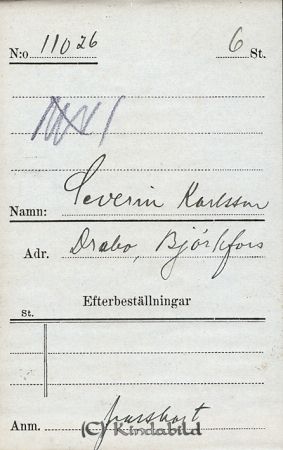 N:o 11026 6 St.
Namn: Severin Karlsson
Adr. Drabo, Björkfors
Efterbeställningar
St.
Anm.
(C) Kindabild